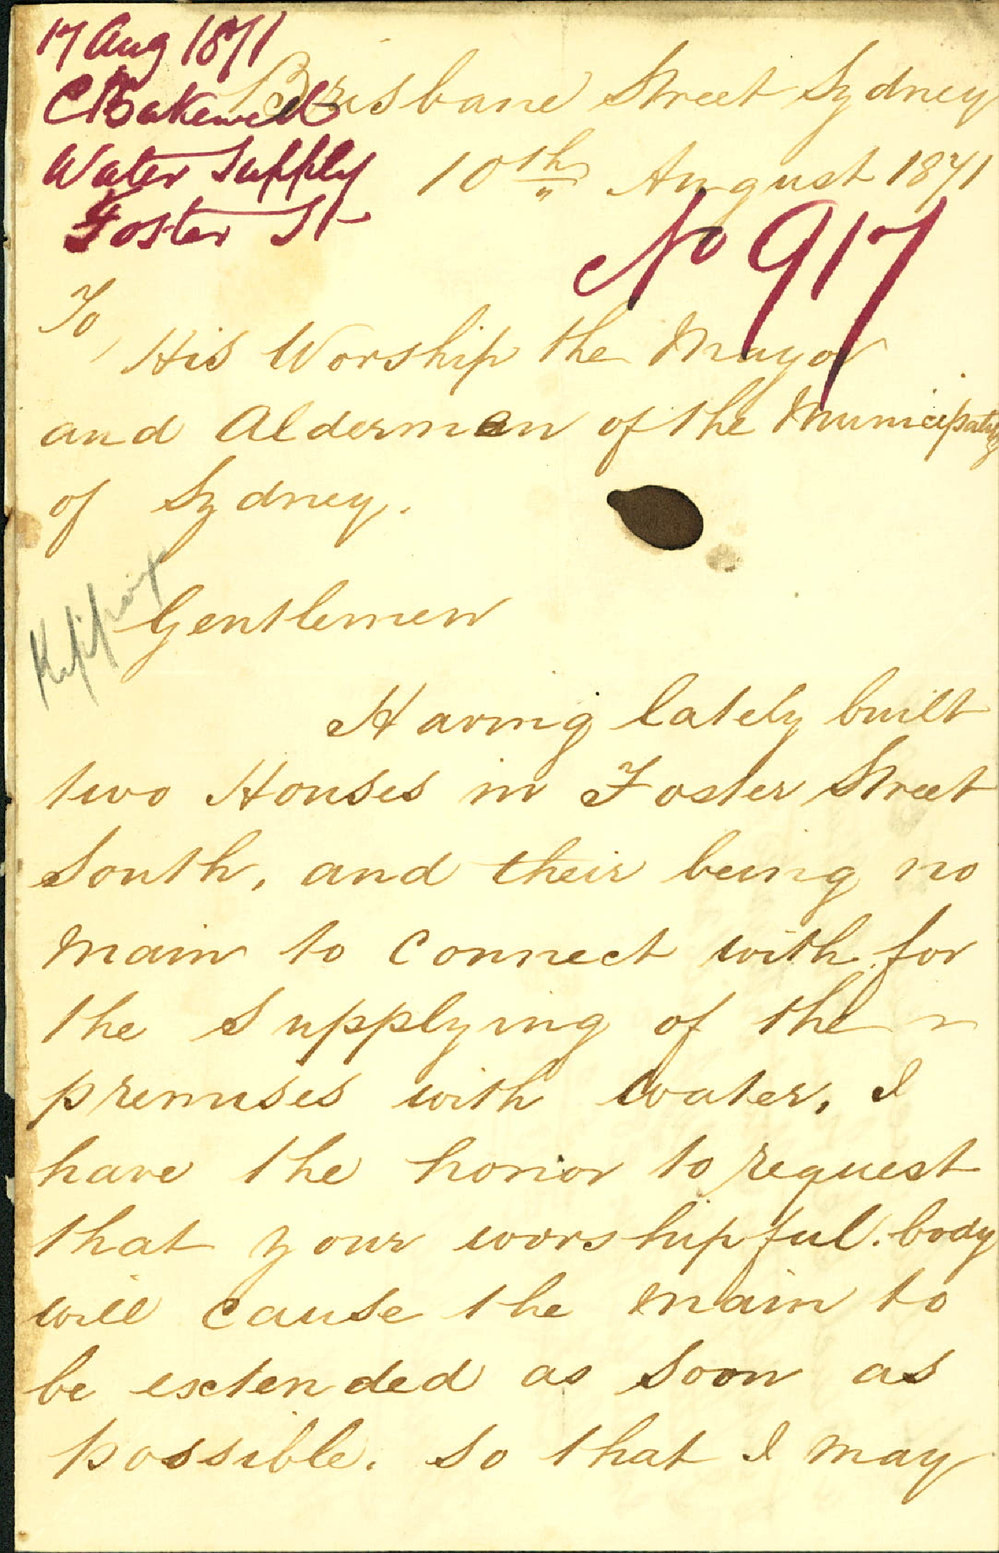 17 Aug 1871
C Bakewell
Water Supply
Foster St
Brisbane Street Sydney
10th August 1871
No 917
To,
His Worship the Mayor
and Aldermen of the Municipality
of Sydney.
Gentlemen
Having lately built
two Houses in Foster Street
South, and their being no
main to connect with for
the Supplying of the
premises with water, I
have the honor to request
that your worshipful body
will cause the main to
be extended as soon as
possible. So that I may